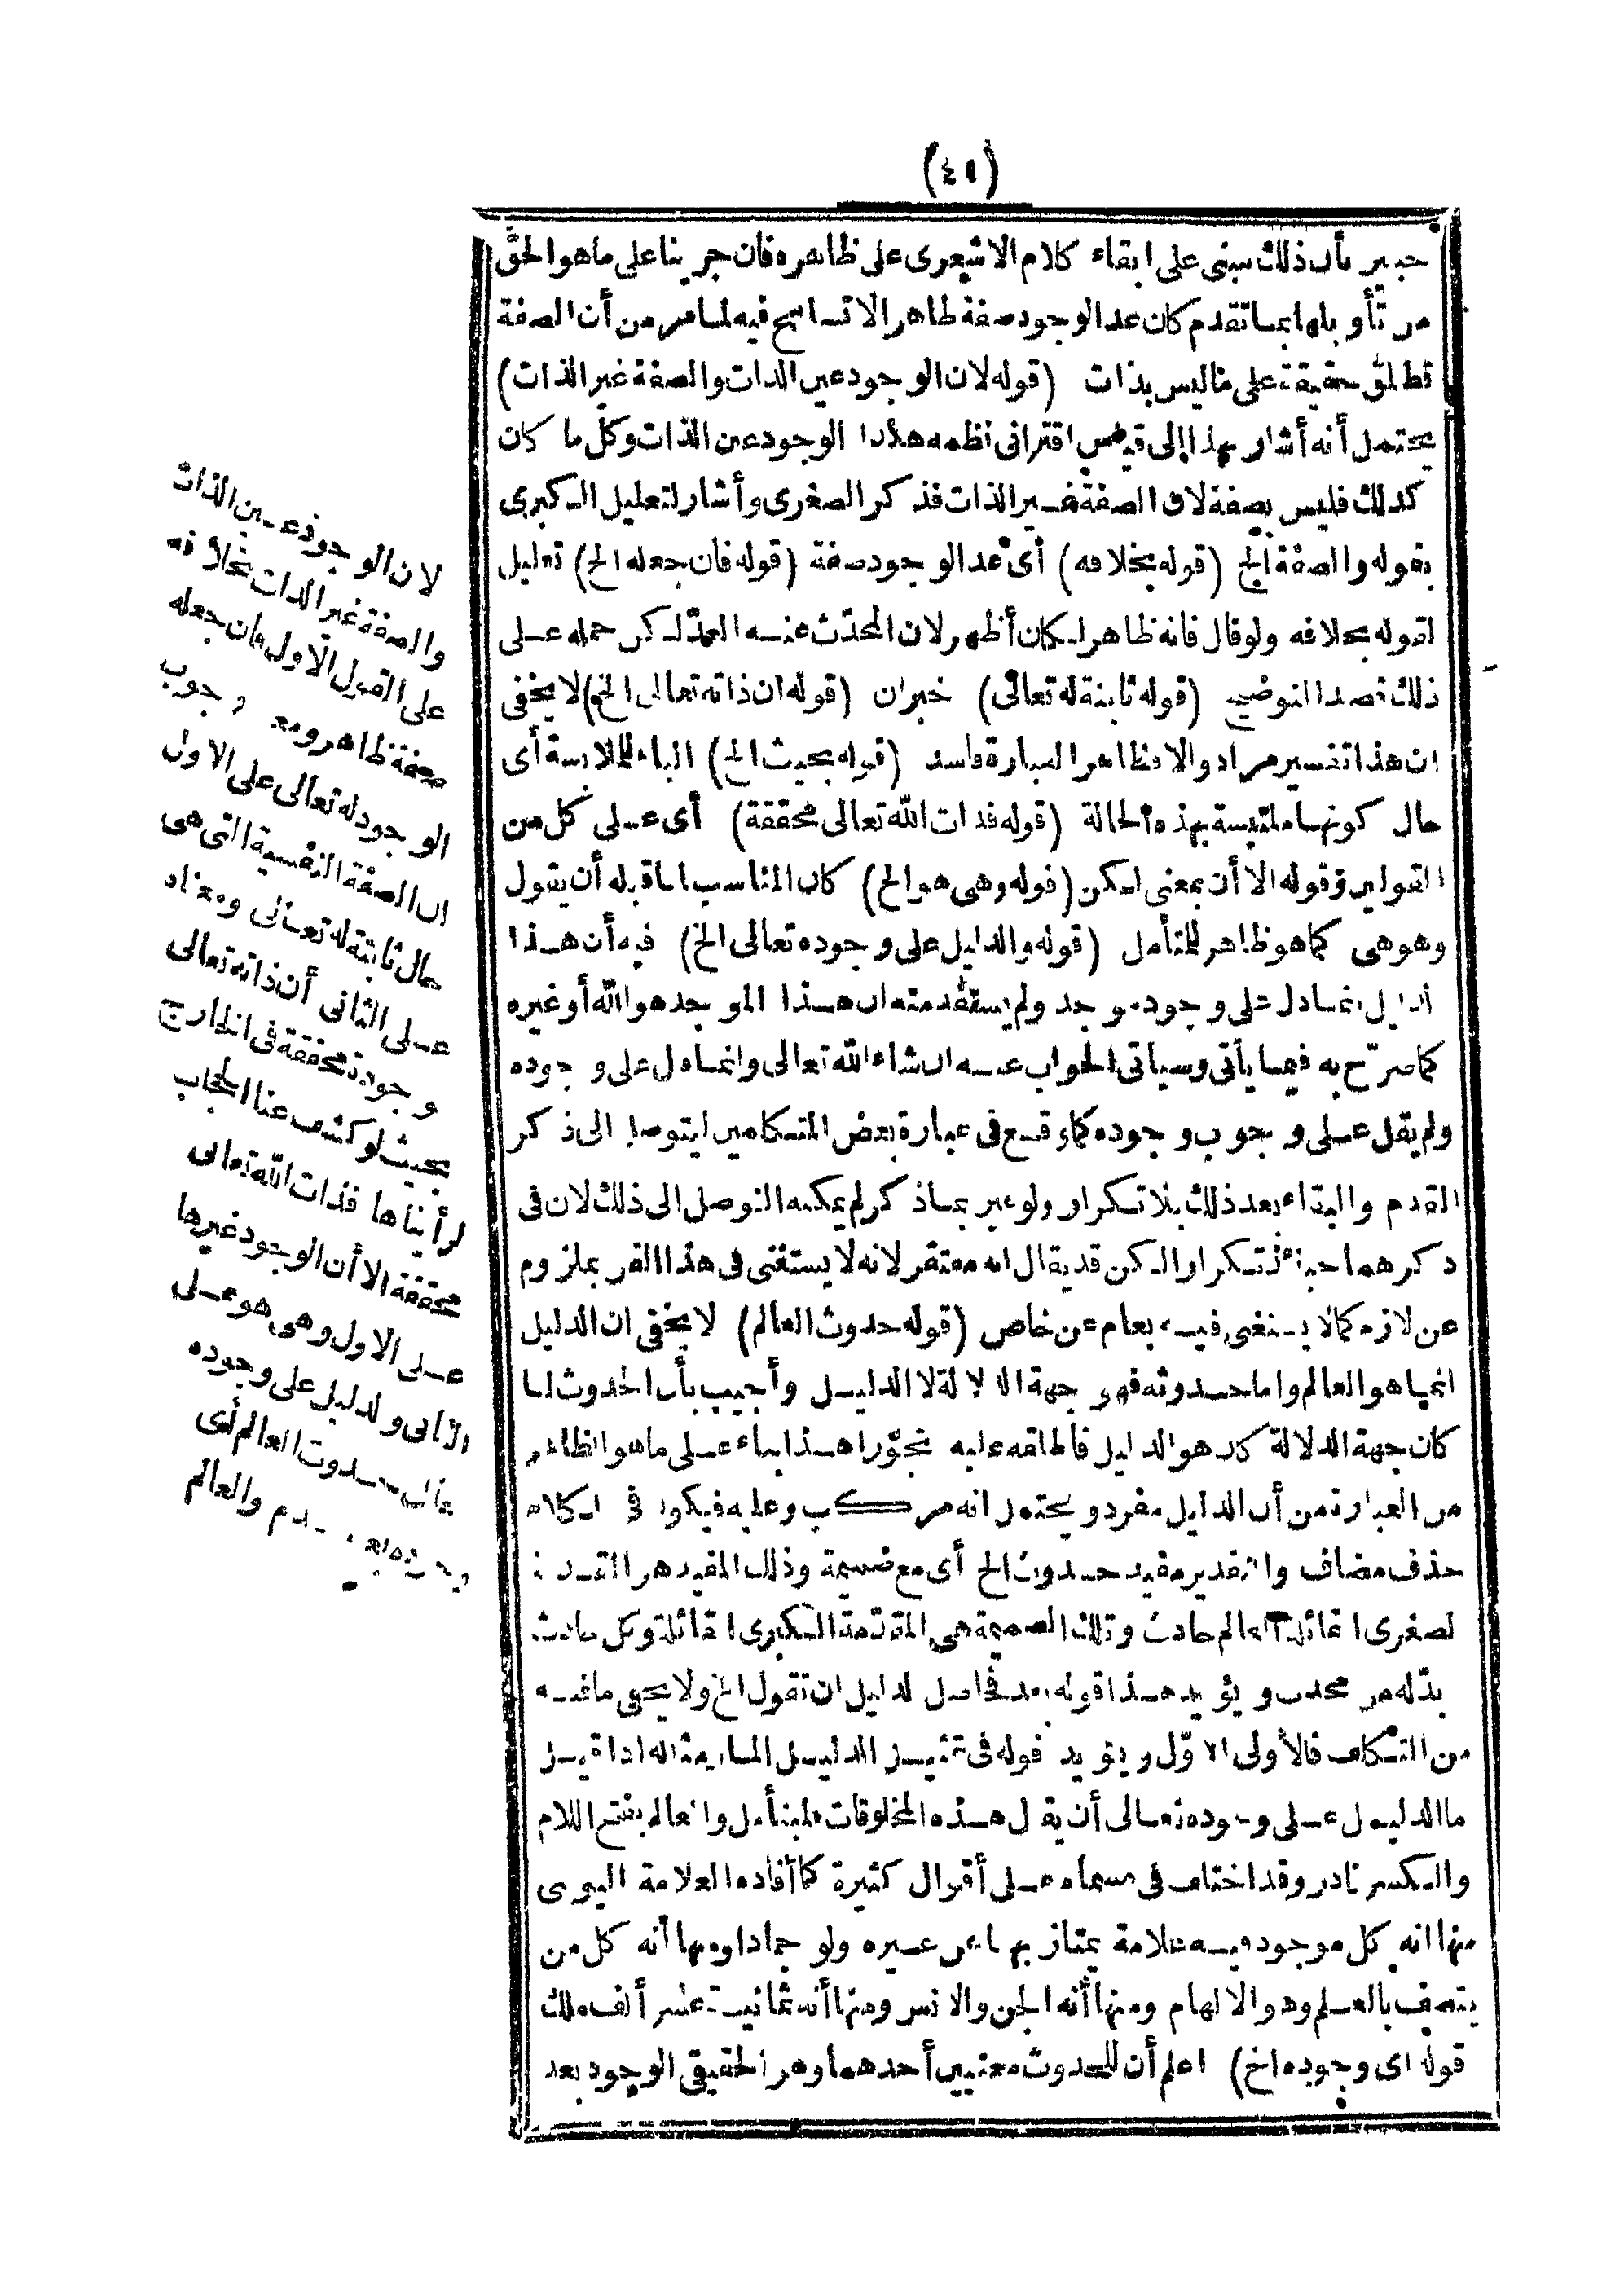 (٤١)
خبير بأن ذلك مبنى على ابقاء كلام الاشعرى على ظاهره فان جرينا على ما هو الحق
من تأويلها بما تقدم كان عد الوجود صفة ظاهرا لا تسامح فيه لما مر من أن الصفة
تطلق حقيقة على ما ليس بذات (قوله لان الوجود عين الذات والصفة غير الذات)
يحتمل أنه أشار بهذا إلى قياس اقترانى نظمه هكذا الوجود عين الذات وكل ما كان
كذلك فليس بصفة لان الصفة غير الذات فذكر الصغرى وأشار لتعليل الكبرى
بقوله والصفة الخ (قوله بخلافه) أى عد الوجود صفة (قوله فان جعله الخ) تعليل
لقوله بخلافه ولو قال فانه ظاهر لكان أظهر لان المحدّث عنه العدّ لكن حمله على
ذلك قصد التوضيح (قوله ثابتة له تعالى) خبران (قوله ان ذاته تعالى الخ) لا يخفى
ان هذا تفسير مراد والا فظاهر العبارة فاسد (قوله بحيث الخ) الباء للملابسة أى
حال كونها ملتبسة بهذه الحالة (قوله فذات الله تعالى محققة) أى على كل من
القولين وقوله الا أن بمعنى لكن (قوله وهى هو الخ) كان المناسب لما قبله أن يقول
وهو هى كما هو ظاهر للمتأمل (قوله والدليل على وجوده تعالى الخ) فيه أن هذا
الدليل انما دل على وجود موجد ولم يستفد منه ان هذا الموجد هو الله أو غيره
كما صرّح به فيما يأتى وسيأتى الجواب عنه ان شاء الله تعالى وانما دل على وجوده
ولم يقل على وجوب وجوده كما وقع فى عبارة بعض المتكلمين ليتوصل الى ذكر
القدم والبقاء بعد ذلك بلا تكرار ولو عبر بما ذكر لم يمكنه التوصل الى ذلك لان فى
ذكرهما حينئذ تكرار لكن قد يقال انه مغتفر لانه لا يستغنى فى هذا الفن بملزوم
عن لازم كما لا يستغنى فيه بعام عن خاص (قوله حدوث العالم) لا يخفى ان الدليل
انما هو العالم واما حدوثه فهو جهة الدلالة لا الدليل وأجيب بأن الحدوث لما
كان جهة الدلالة كان هو الدليل فأطلقه عليه تجوّزا هذا بناء على ما هو الظاهر
من العبارة من أن الدليل مفرد ويحتمل انه مركب وعليه فيكون فى الكلام
حذف مضاف والتقدير مفيد حدوث الخ أى مع ضميمة وذلك المفيد هو المقدمة
لصغرى القائلة العالم حادث وتلك الضميمة هى المقدّمة الكبرى القائلة وكل حادث
بدّ له من محدث ويؤيد هذا قوله بعد فحاصل لدليل ان تقول الخ ولا يخفى ما فيه
من التكلف فالأولى الاوّل ويؤيد قوله فى تمثيل الدليل المار يقال له اذا قيل
ما الدليل على وجوده تعالى أن يقول هذه المخلوقات فليتأمل والعالم بفتح اللام
والكسر نادر وقد اختلف فى مسماه على أقوال كثيرة كما أفاده العلامة اليوسى
منها انه كل موجود فيه علامة يمتاز بها عن غيره ولو جمادا ومنها أنه كل من
يتصف بالعلم وهو الالهام ومنها أنه الجن والانس ومنها أنه ثمانية عشر ألف ملك
قوله اى وجوده الخ) اعلم أن للحدوث معنيين أحدهما وهو الحقيقى الوجود بعد
لان الوجود عين الذات
والصفة غير الذات بخلافه
على القول الاول فان جعله
صفة ظاهر ومعنى وجوب
الوجود له تعالى على الاول
ان الصفة النفسية التى هى
حال ثابتة له تعالى ومعناه
على الثانى أن ذاته تعالى
وجودة محققة فى الخارج
بحيث لو كشف عنا الحجاب
لرأيناها فذات الله تعالى
محققة الا أن الوجود غيرها
على الاول وهى هو على
الثانى ولدليل على وجوده
تعالى حدوث العالم أى
وجوده بعد عدم والعالم